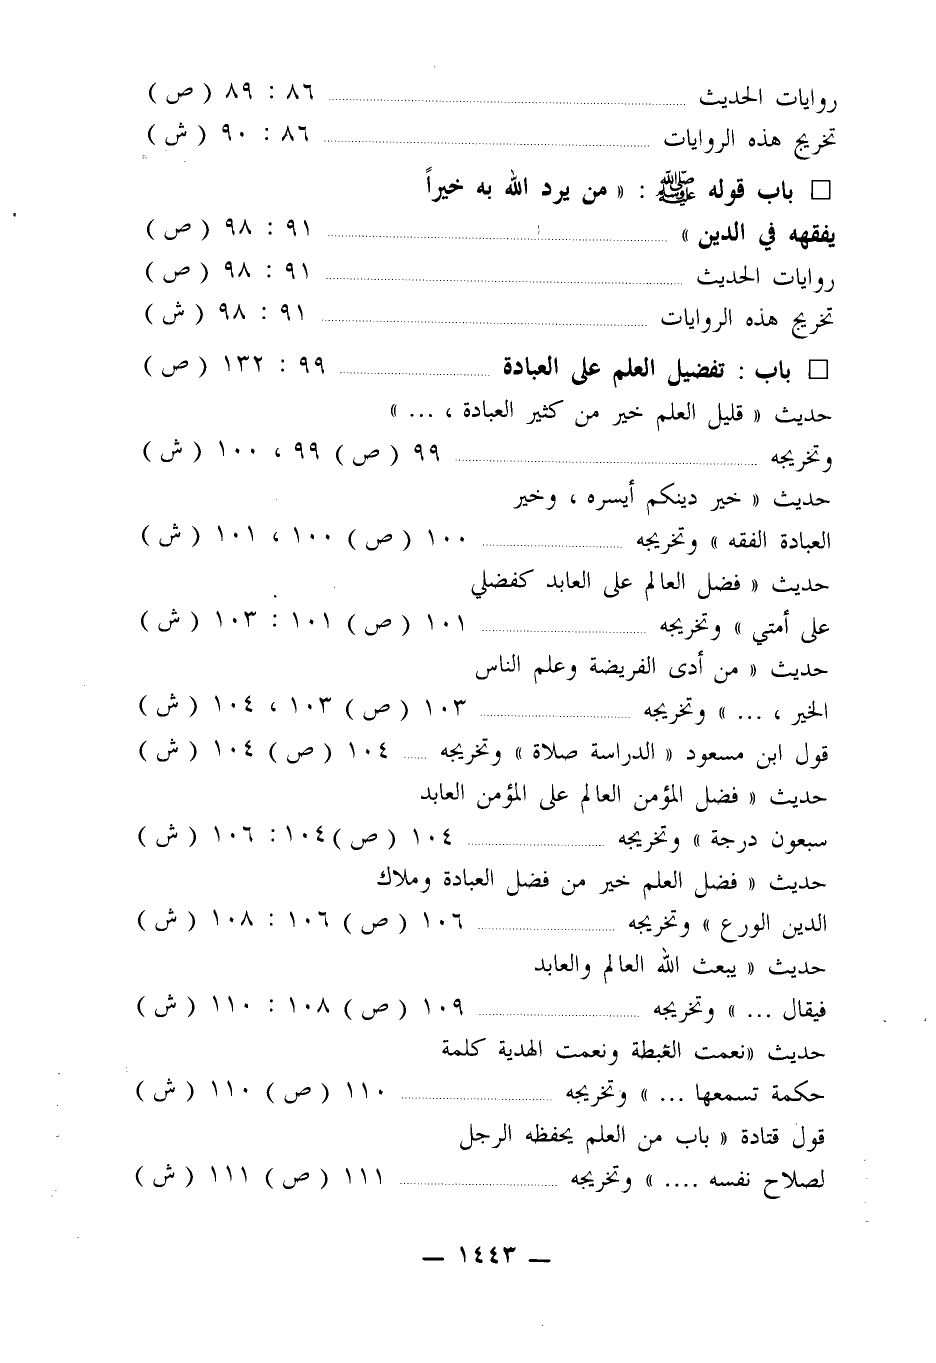 روايات الحديث ........ ٨٦ : ٨٩ ( ص )
تخريج هذه الروايات ........ ٨٦ : ٩٠ ( ش )
□ باب قوله ﷺ : « من يرد الله به خيراً
يفقهه في الدين » ........ ٩١ : ٩٨ ( ص )
روايات الحديث ........ ٩١ : ٩٨ ( ص )
تخريج هذه الروايات ........ ٩١ : ٩٨ ( ش )
□ باب : تفضيل العلم على العبادة ........ ٩٩ : ١٣٢ ( ص )
حديث « قليل العلم خير من كثير العبادة ، ... »
وتخريجه ........ ٩٩ ( ص ) ٩٩ ، ١٠٠ ( ش )
حديث « خير دينكم أيسره ، وخير
العبادة الفقه » وتخريجه ........ ١٠٠ ( ص ) ١٠٠ ، ١٠١ ( ش )
حديث « فضل العالم على العابد كفضلي
على أمتي » وتخريجه ........ ١٠١ ( ص ) ١٠١ : ١٠٣ ( ش )
حديث « من أدى الفريضة وعلم الناس
الخير ، ... » وتخريجه ........ ١٠٣ ( ص ) ١٠٣ ، ١٠٤ ( ش )
قول ابن مسعود « الدراسة صلاة » وتخريجه ...... ١٠٤ ( ص ) ١٠٤ ( ش )
حديث « فضل المؤمن العالم على المؤمن العابد
سبعون درجة » وتخريجه ........ ١٠٤ ( ص ) ١٠٤ : ١٠٦ ( ش )
حديث « فضل العلم خير من فضل العبادة وملاك
الدين الورع » وتخريجه ........ ١٠٦ ( ص ) ١٠٦ : ١٠٨ ( ش )
حديث « يبعث الله العالم والعابد
فيقال ... » وتخريجه ........ ١٠٩ ( ص ) ١٠٨ : ١١٠ ( ش )
حديث «نعمت الغبطة ونعمت الهدية كلمة
حكمة تسمعها ... » وتخريجه ........ ١١٠ ( ص ) ١١٠ ( ش )
قول قتادة « باب من العلم يحفظه الرجل
لصلاح نفسه .... » وتخريجه ........ ١١١ ( ص ) ١١١ ( ش )
— ١٤٤٣ —